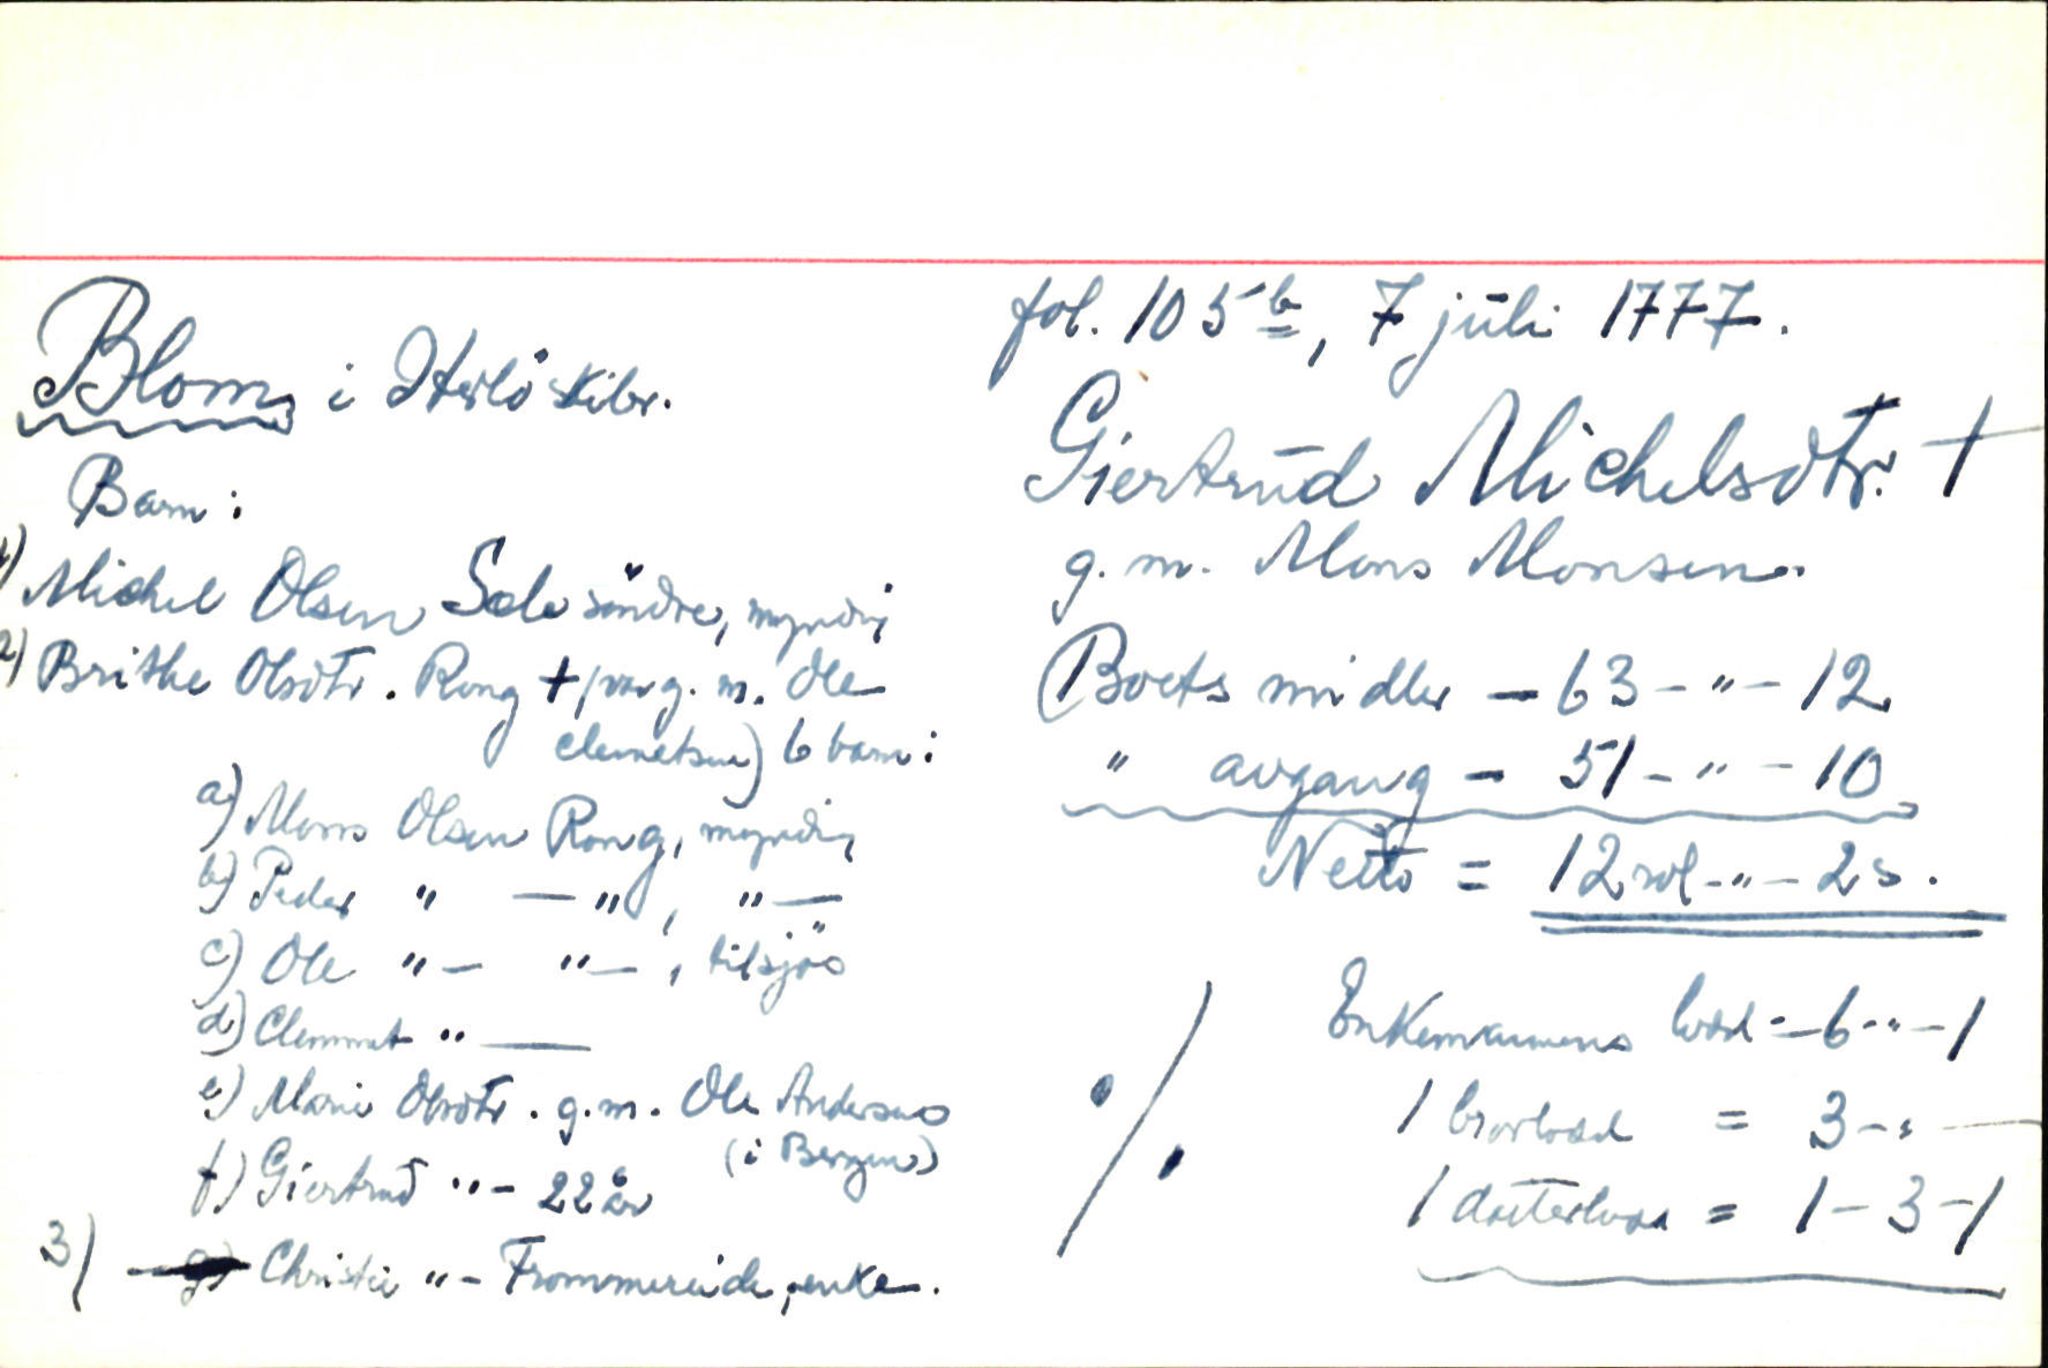 fol. 105b, 7 juli 1777.
Blom i Herlö skibr.
Giertrud Michelsdtr. †
g. m. Mons Monsen.
Barn:
1) Michel Olsen Sele söndre, myndig
2) Brithe Olsdtr. Rong † (var g. m. Ole
Clemetsen) 6 barn:
a) Mons Olsen Rong, myndig
b) Peder " — " , " —
c) Ole " — " — , tilsjös
d) Clemmet " —
e) Marie Olsdtr. g. m. Ole Andersen
(i Bergen)
f) Giertrud " — 22 år
3) Christie " — Frommereide, enke.
Boets midler — 63 — " — 12
" avgang — 51 — " — 10
Netto = 12 rdl — " — 2 s.
%
Enkemannens lodd — 6 — " — 1
1 brorlodd = 3 — " —
1 dotterlodd = 1 — 3 — 1